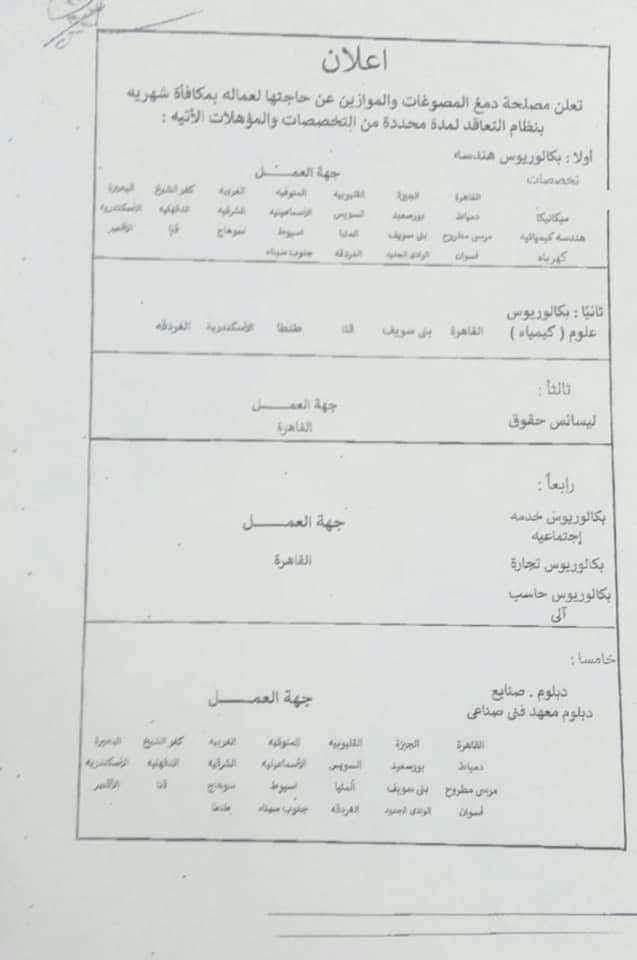 اعلان
تعلن مصلحة دمغ المصوغات والموازين عن حاجتها لعماله بمكافأة شهريه
بنظام التعاقد لمدة محددة من التخصصات والمؤهلات الأتيه :
أولا : بكالوريوس هندسه
تخصصات جهة العمـــــل
القاهرة الجيزة القليوبيه المنوفيه الغربيه كفر الشيخ البحيرة
ميكانيكا دمياط بورسعيد السويس الأسماعيليه الشرقيه الدقهليه الأسكندريه
هندسه كيميائيه مرسى مطروح بنى سويف المنيا اسيوط سوهاج قنا الأقصر
كهرباء أسوان الوادى الجديد الغردقه جنوب سيناء
ثانيًا : بكالوريوس
علوم ( كيمياء ) القاهرة بنى سويف قنا طنطا الأسكندرية الغردقه
ثالثاً :
جهة العمـــــل
ليسانس حقوق القاهرة
رابعاً :
بكالوريوس خدمه
إجتماعيه جهة العمـــــل
بكالوريوس تجارة القاهرة
بكالوريوس حاسب
آلى
خامسا :
دبلوم . صنايع جهة العمـــــل
دبلوم معهد فنى صناعى
القاهرة الجيزة القليوبيه المنوفيه الغربيه كفر الشيخ البحيرة
دمياط بورسعيد السويس الأسماعيليه الشرقيه الدقهليه الأسكندريه
مرسى مطروح بنى سويف المنيا اسيوط سوهاج قنا الأقصر
أسوان الوادى الجديد الغردقه جنوب سيناء طنطا